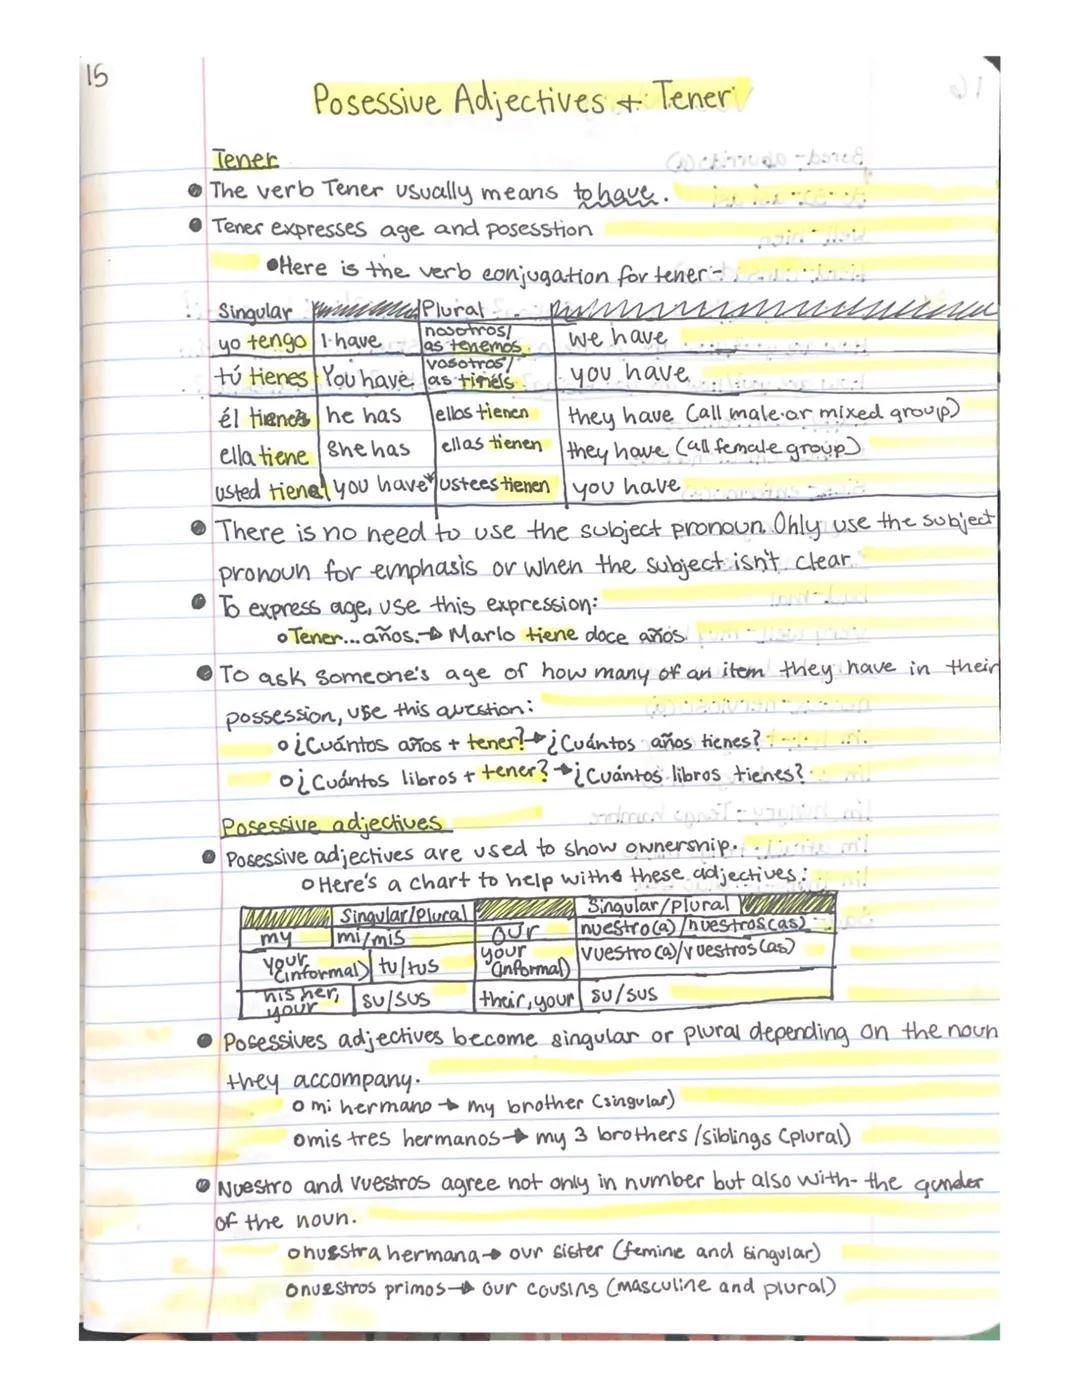 15
Posessive Adjectives + Tener
Tener
• The verb Tener usually means to have.
• Tener expresses age and posesstion
• Here is the verb conjugation for tener-
Singular Plural
yo tengo I have nosotros/as tenemos we have
tú tienes You have vosotros/as tinéis you have
él tiene he has ellos tienen they have (all male or mixed group)
ella tiene she has ellas tienen they have (all female group)
usted tiene you have ustees tienen you have
• There is no need to use the subject pronoun. Only use the subject
pronoun for emphasis or when the subject isn't clear.
• To express age, use this expression:
o Tener... años. → Marlo tiene doce años
• To ask someone's age of how many of an item they have in their
possession, use this question:
o ¿Cuántos años + tener? → ¿Cuántos años tienes?
o ¿Cuántos libros + tener? → ¿Cuántos libros tienes?
Posessive adjectives
• Posessive adjectives are used to show ownership.
o Here's a chart to help with these adjectives:
Singular/Plural Singular/Plural
my mi/mis our nuestro(a)/nuestros(as)
your (informal) tu/tus your (informal) vuestro(a)/vuestros(as)
his her, your su/sus their, your su/sus
• Posessives adjectives become singular or plural depending on the noun
they accompany.
o mi hermano → my brother (singular)
o mis tres hermanos → my 3 brothers/siblings (plural)
• Nuestro and vuestros agree not only in number but also with- the gunder
of the noun.
o nuestra hermana → our sister (femine and singular)
o nuestros primos → our cousins (masculine and plural)